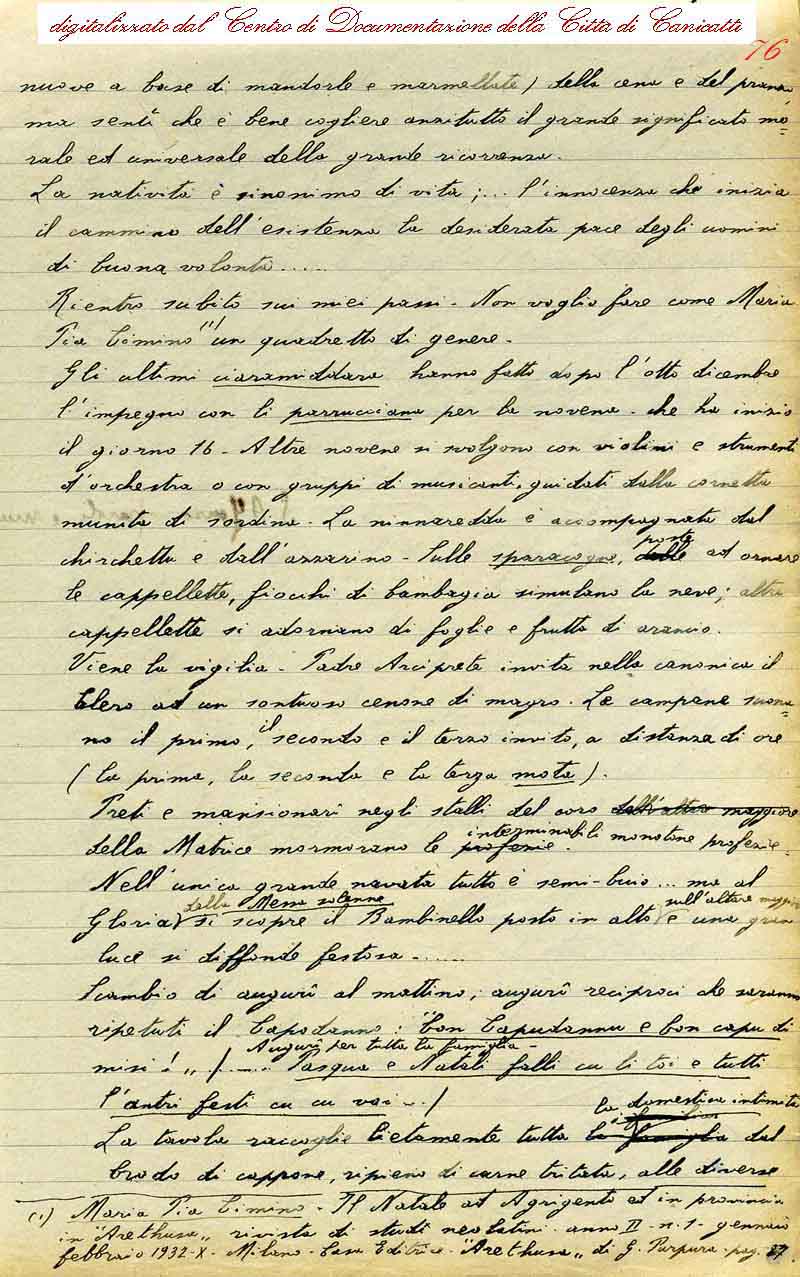 digitalizzato dal Centro di Documentazione della Città di Canicattì
76
nuove a base di mandorle e marmellate) della cena e del pranzo
ma sentì che è bene cogliere anzitutto il grande significato mo=
rale ed universale della grande ricorrenza.
La natività è sinonimo di vita; ... l'innocenza che inizia
il cammino dell'esistenza la desiderata pace degli uomini
di buona volontà .....
Rientro subito sui miei passi - Non voglio fare come Maria
Pia Cimino (1) un quadretto di genere -
Gli ultimi ciaramiddara hanno fatto dopo l'otto dicembre
l'impegno con li parrucciana per la novena - che ha inizio
il giorno 16 - Altre novene si svolgono con violini e strumenti
d'orchestra o con gruppi di musicanti, guidati dalla cornetta
munita di sordina - La ninnaredda è accompagnata dal
chirchettu e dall'azzarino - Sulle sparacogne, poste ad ornare
le cappellette, fiocchi di bambagia simulano la neve; altre
cappellette si adornano di foglie e frutta di arancio.
Viene la vigilia - Padre Arciprete invita nella canonica il
Clero ad un sontuoso cenone di magro. Le campane suona=
no il primo, il secondo e il terzo invito, a distanza di ore
(la prima, la seconda e la terza mota).
Preti e mansionarî negli stalli del coro dell'altare maggiore
della Matrice mormorano le profezie. interminabili monotone profezie.
Nell'unica grande navata tutto è semi-buio ... ma al
Gloria della Messa solenne si scopre il Bambinello posto in alto sull'altare maggiore e una gran
luce si diffonde festosa - .....
Scambio di augurî al mattino; augurî reciproci che saranno
ripetuti il Capodanno: "Bon Capudannu e bon capu di
misi! „ /..... Augurî per tutta la famiglia - Pasqua e Natali falli cu li toi e tutti
l'antri festi cu cu vai -../
La tavola raccoglie lietamente tutta la famiglia la domestica intimità dal
brodo di cappone, ripieno di carne tritata, alle diverse
(1) Maria Pia Cimino - Il Natale ad Agrigento ed in provincia
in "Arethusa„ rivista di studî neolatini - anno II - n. 1 - gennaio
febbraio 1932-X - Milano - Casa Editrice - "Arethusa„ di G. Purpura - pag. 27.